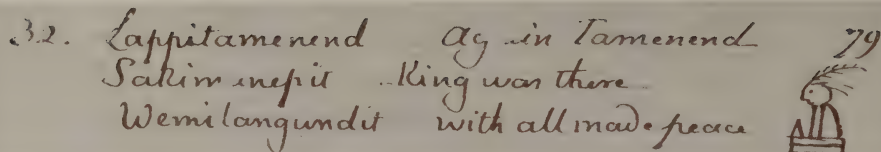 32. Lappitamenend Ag in Tamenend 79
Sakimanepit King was there
Wemilangundit with all made peace